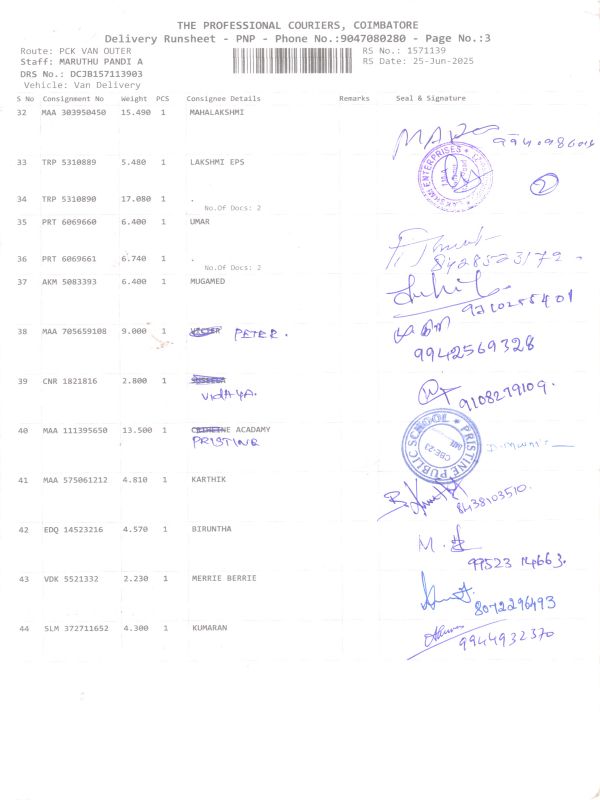 THE PROFESSIONAL COURIERS, COIMBATORE
Delivery Runsheet - PNP - Phone No.:9047080280 - Page No.:3
Route: PCK VAN OUTER RS No.: 1571139
Staff: MARUTHU PANDI A RS Date: 25-Jun-2025
DRS No.: DCJB157113903
Vehicle: Van Delivery
S No Consignment No Weight PCS Consignee Details Remarks Seal & Signature
32 MAA 303950450 15.490 1 MAHALAKSHMI
33 TRP 5310889 5.480 1 LAKSHMI EPS
34 TRP 5310890 17.080 1 .
No.Of Docs: 2
2
35 PRT 6069660 6.400 1 UMAR
36 PRT 6069661 6.740 1 .
No.Of Docs: 2
8428523172
37 AKM 5083393 6.400 1 MUGAMED
38 MAA 705659108 9.000 1 PETER.
9942569328
39 CNR 1821816 2.800 1
VIDHYA.
9108279109.
40 MAA 111395650 13.500 1 ACADAMY
PRISTINE
PRISTINE PUBLIC SCHOOL
CBE-23
41 MAA 575061212 4.810 1 KARTHIK
8438103510.
42 EDQ 14523216 4.570 1 BIRUNTHA
M.
99523 14663.
43 VDK 5521332 2.230 1 MERRIE BERRIE
8072296493
44 SLM 372711652 4.300 1 KUMARAN
9944932370